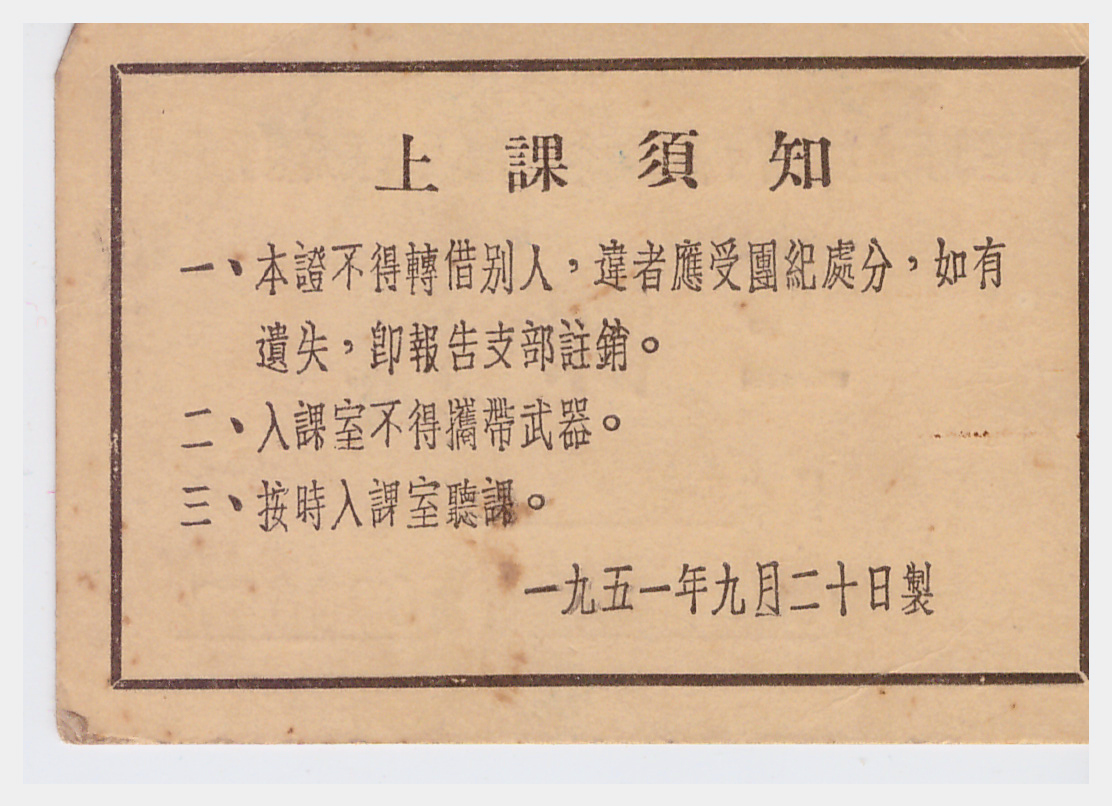 上課須知
一、本證不得轉借別人，違者應受團紀處分，如有
遺失，即報告支部註銷。
二、入課室不得攜帶武器。
三、按時入課室聽課。
一九五一年九月二十日製